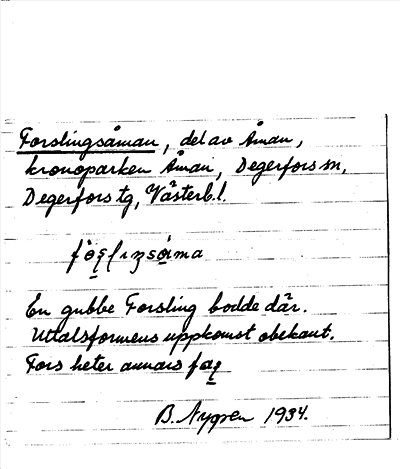 Forslingsåman, del av Åman,
kronoparken Åman, Degerfors sn,
Degerfors tg, Västerb. l.
En gubbe Forsling bodde där.
Uttalsformens uppkomst obekant.
Fors heter annars
B. Nygren 1934.